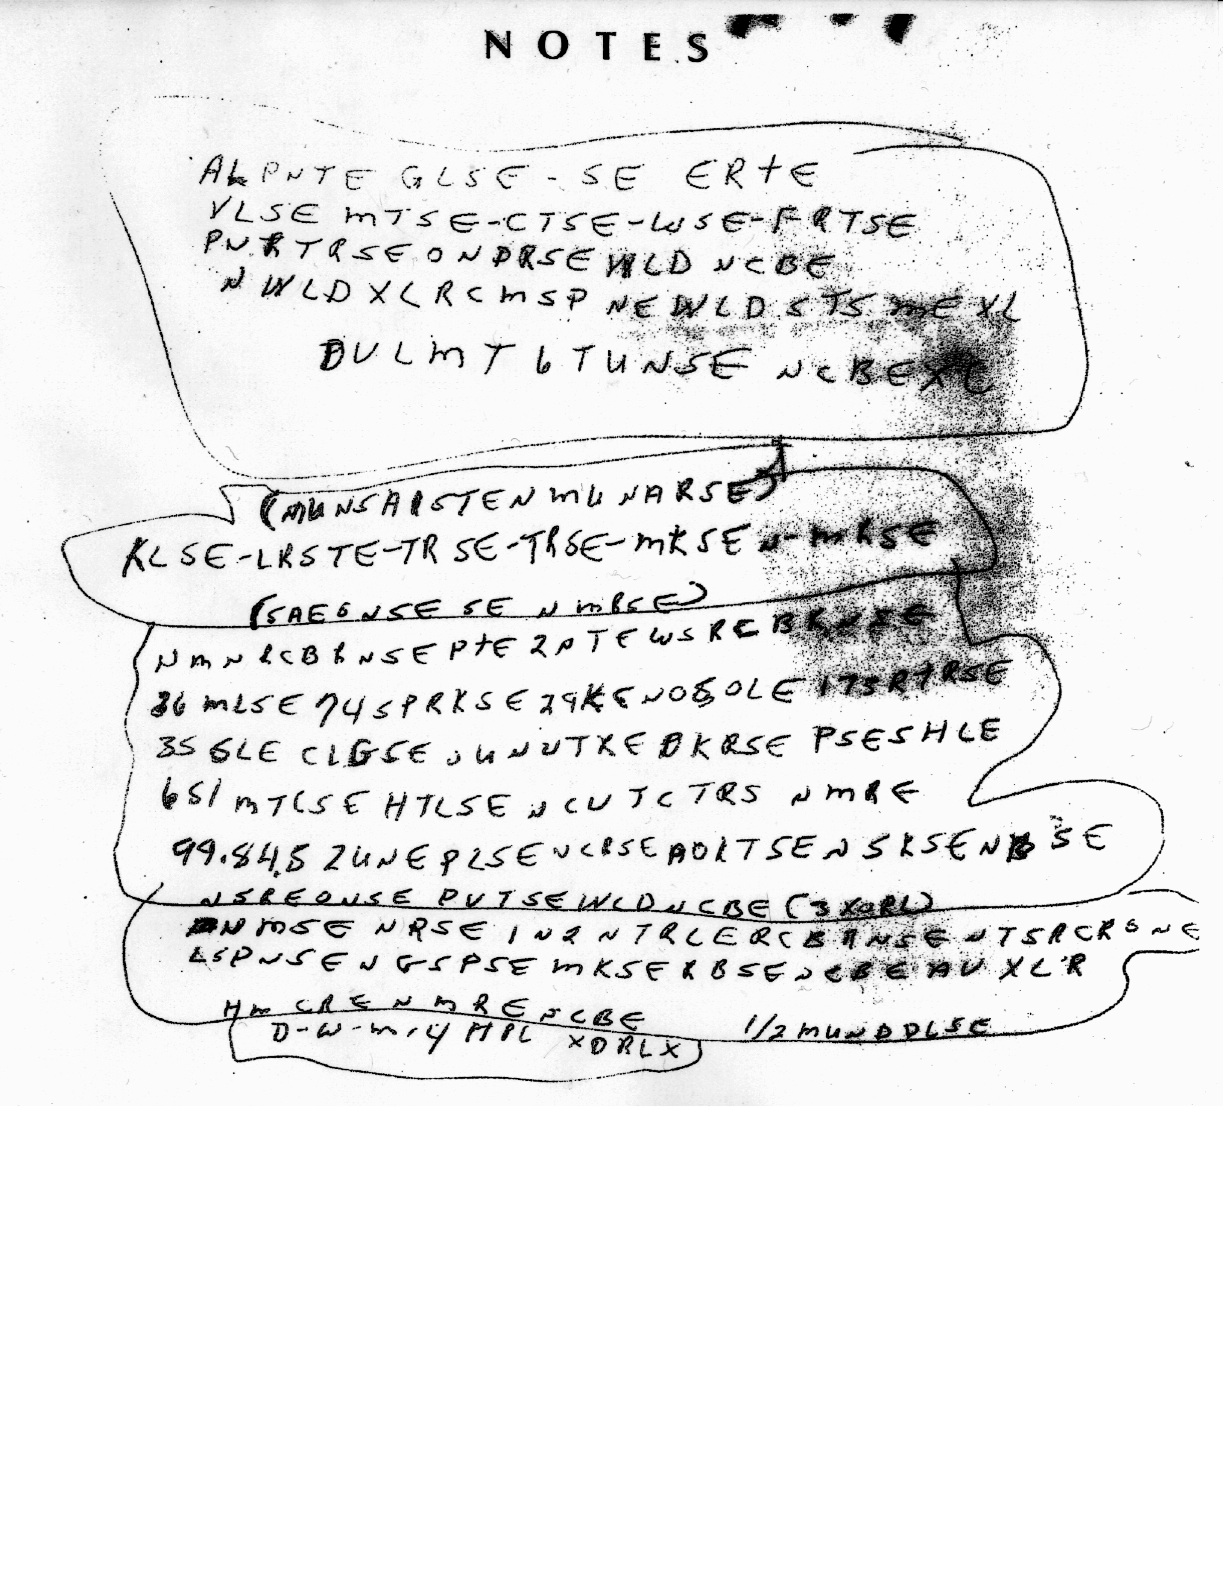 NOTES
ALPNTE GLSE - SE ERTE
VLSE MTSE-CTSE-WSE-FRTSE
PNRTRSE ONDRSE WLD NCBE
N WLD XLRCMSP NEWLD STS ME XL
DULMT 6 TUNSE NCBE XC
(MUNSARSTEN MUNARSE)
KLSE-LRSTE-TRSE-TRSE-MKSEN-MRSE
(SAE6NSE SE N MRSE)
NMNRCBRNSE PTE2PTEWSRCBRNSE
36 MLSE 74 SPRKSE 29KENOSOLE 173RTRSE
35 GLE CLGSE OUNUTXE DKRSE PSESHLE
651 MTCSE HTLSE NCUTCTRS NMRE
99.84.5 ZUNE PLSE NCRSE AOLTSE NSKSENB SE
NSREONSE PUTSE WLD NCBE (3 XORL)
NMSE NRSE IN2 NTRLERCBRNSE NTSRCRONE
LSPNSE NGSPSE MKSERBSE NCBE AUXLR
HM CRE NMRE NCBE 1/2 MUNDDLSE
D-W-M-4 MPL XDRLX